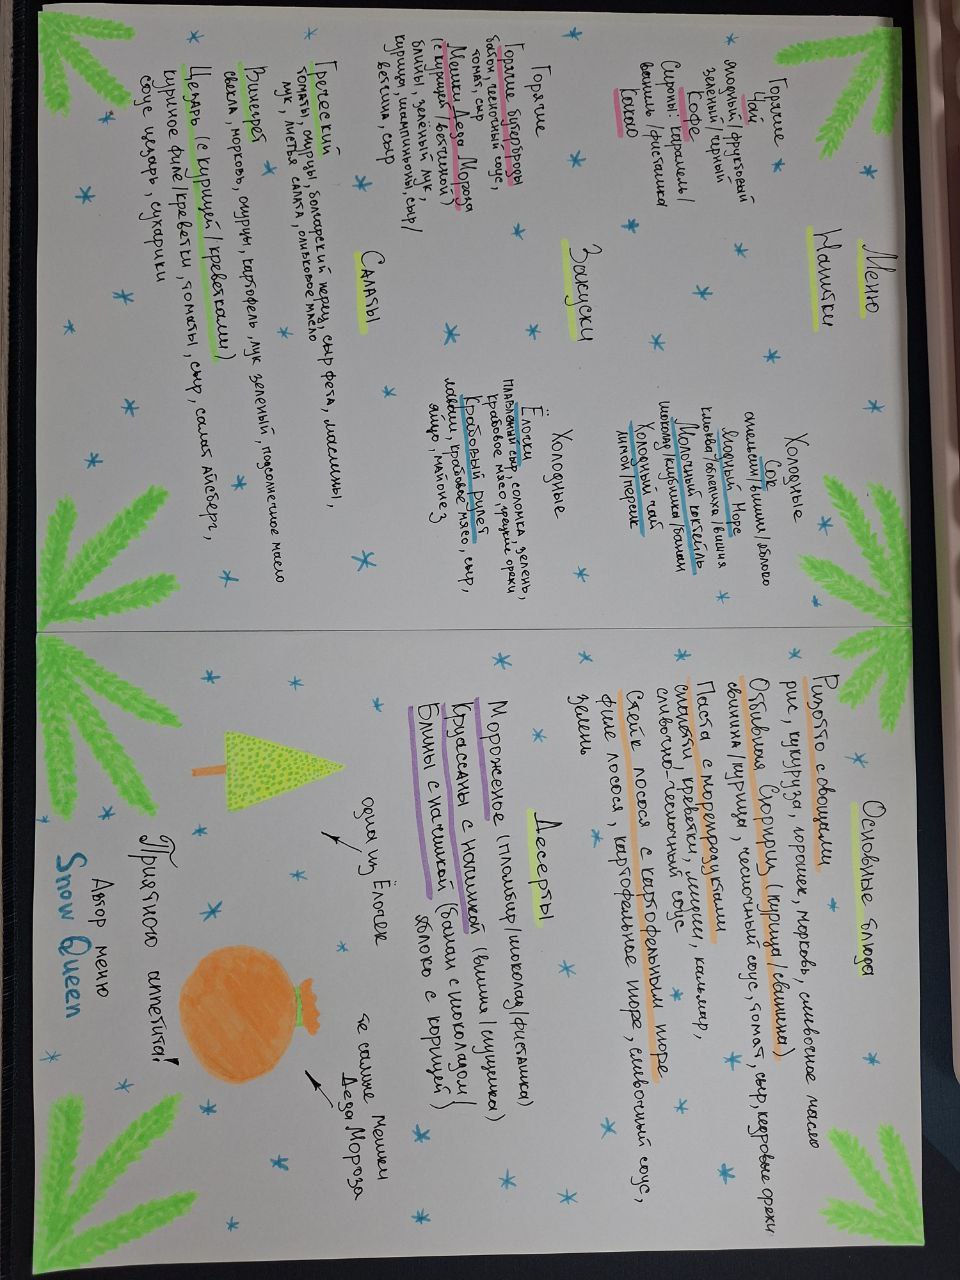 Меню
Напитки
Горячие
Чай
ягодный/фруктовый
зелёный/чёрный
Кофе
Сиропы: карамель/
ваниль/фисташка
Какао
Холодные
Сок
апельсин/вишня/яблоко
Ягодный Морс
клюква/облепиха/вишня
Молочный коктейль
шоколад/клубника/банан
Холодный чай
лимон/персик
Закуски
Горячие
Горячие бутерброды
батон, чесночный соус,
томат, сыр
Мешки Деда Мороза
(с курицей/ветчиной)
блины, зелёный лук,
курица, шампиньоны, сыр/
ветчина, сыр
Холодные
Ёлочки
плавленный сыр, соломка, зелень,
крабовое мясо, грецкие орехи
Крабовый рулет
лаваш, крабовое мясо, сыр,
яйцо, майонез
Салаты
Греческий
томаты, огурцы, болгарский перец, сыр фета, маслины,
лук, листья салата, оливковое масло
Винегрет
свекла, морковь, огурцы, картофель, лук зеленый, подсолнечное масло
Цезарь (с курицей/креветками)
куриное филе/креветки, томаты, сыр, салат айсберг,
соус цезарь, сухарики
Основные блюда
Ризотто с овощами
рис, кукуруза, горошек, морковь, сливочное масло
Отбивная Сюрприз (курица/свинина)
свинина/курица, чесночный соус, томат, сыр, кедровые орехи
Паста с морепродуктами
спагетти, креветки, мидии, кальмар,
сливочно-чесночный соус
Стейк лосося с картофельным пюре
филе лосося, картофельное пюре, сливочный соус,
зелень
Десерты
Мороженое (пломбир/шоколад/фисташка)
Круассаны с начинкой (вишня/сгущенка)
Блины с начинкой (банан с шоколадом/
яблоко с корицей)
одна из Ёлочек
те самые мешки
Деда Мороза
Приятного аппетита!
Автор меню
Snow Queen